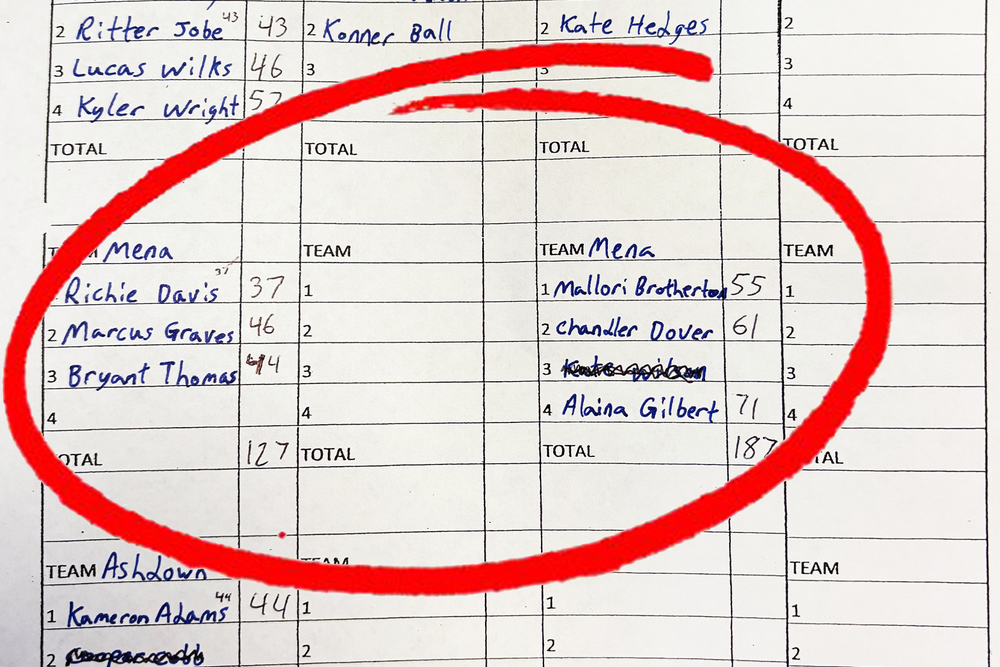 43
2 Ritter Jobe 43 2 Konner Ball 2 Kate Hedges 2
3 Lucas Wilks 46 3 3 3
4 Kyler Wright 57 4
TOTAL TOTAL TOTAL TOTAL
TEAM Mena TEAM TEAM Mena TEAM
37
Richie Davis 37 1 1 Mallori Brotherton 55 1
2 Marcus Graves 46 2 2 Chandler Dover 61 2
3 Bryant Thomas 44 3 3 3
4 4 4 Alaina Gilbert 71 4
TOTAL 127 TOTAL TOTAL 187 TOTAL
TEAM Ashdown TEAM TEAM
44
1 Kameron Adams 44 1 1 1
2 2 2 2